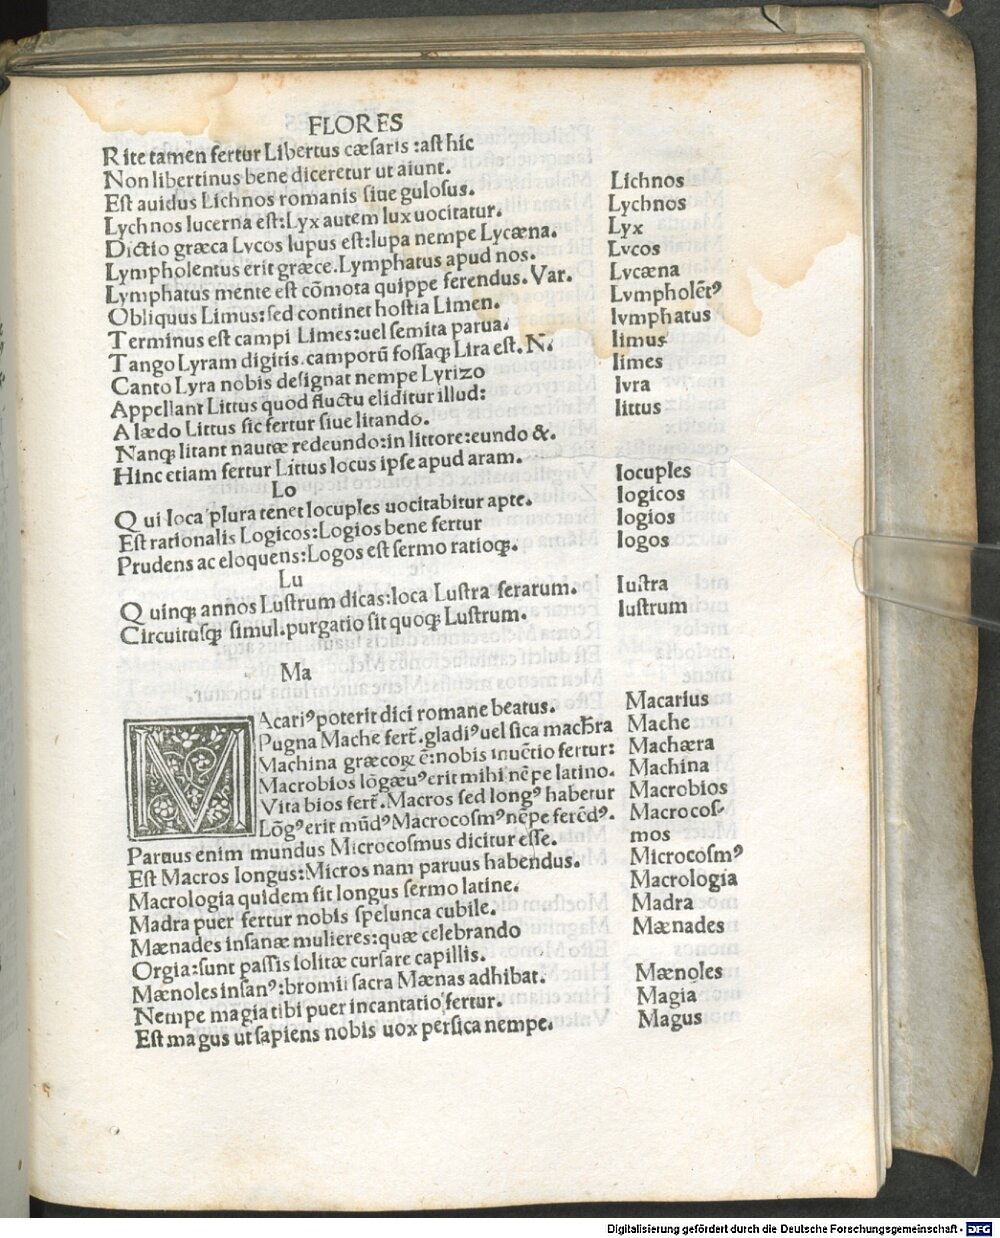 FLORES
Rite tamen fertur Libertus cæsaris :ast hic
Non libertinus bene diceretur ut aiunt.
Est auidus Lichnos romanis siue gulosus.
Lychnos lucerna est:Lyx autem lux uocitatur.
Dictio græca Lycos lupus est:lupa nempe Lycæna.
Lympholentus erit græce.Lymphatus apud nos.
Lymphatus mente est cōmota quippe ferendus.Var.
Obliquus Limus:sed continet hostia Limen.
Terminus est campi Limes:uel semita parua.
Tango Lyram digitis.camporū fossaqꝫ Lira est.N.
Canto Lyra nobis designat nempe Lyrizo
Appellant Littus quod fluctu eliditur illud:
A lædo Littus sic fertur siue litando.
Nanqꝫ litant nautæ redeundo:in littore:eundo &.
Hinc etiam fertur Littus locus ipse apud aram.
Lo
Qui loca plura tenet locuples uocitabitur apte.
Est rationalis Logicos:Logios bene fertur
Prudens ac eloquens:Logos est sermo ratioqꝫ.
Lu
Quinqꝫ annos Lustrum dicas:loca Lustra ferarum.
Circuitusqꝫ simul.purgatio sit quoqꝫ Lustrum.
Ma
MAcariꝰ poterit dici romane beatus.
Pugna Mache fert̄.gladiꝰ uel sica machꝛa
Machina græcoꝝ ē:nobis inuētio fertur:
Macrobios lōgæuꝰ erit mihi nēpe latino.
Vita bios fert̄.Macros sed longꝰ habetur
Lōgꝰ erit mūdꝰ Macrocosmꝰ nēpe ferēdꝰ.
Paruus enim mundus Microcosmus dicitur esse.
Est Macros longus:Micros nam paruus habendus.
Macrologia quidem sit longus sermo latine.
Madra puer fertur nobis spelunca cubile.
Mænades insanæ mulieres:quæ celebrando
Orgia:sunt passis solitæ cursare capillis.
Mænoles insanꝰ:bromii sacra Mænas adhibat.
Nempe magia tibi puer incantatio fertur.
Est magus ut sapiens nobis uox persica nempe.
Lichnos
Lychnos
Lyx
Lycos
Lycæna
Lympholētꝰ
lymphatus
limus
limes
lyra
littus
locuples
logicos
logios
logos
lustra
lustrum
Macarius
Mache
Machæra
Machina
Macrobios
Macrocos-
mos
Microcosmꝰ
Macrologia
Madra
Mænades
Mænoles
Magia
Magus
Digitalisierung gefördert durch die Deutsche Forschungsgemeinschaft - DFG